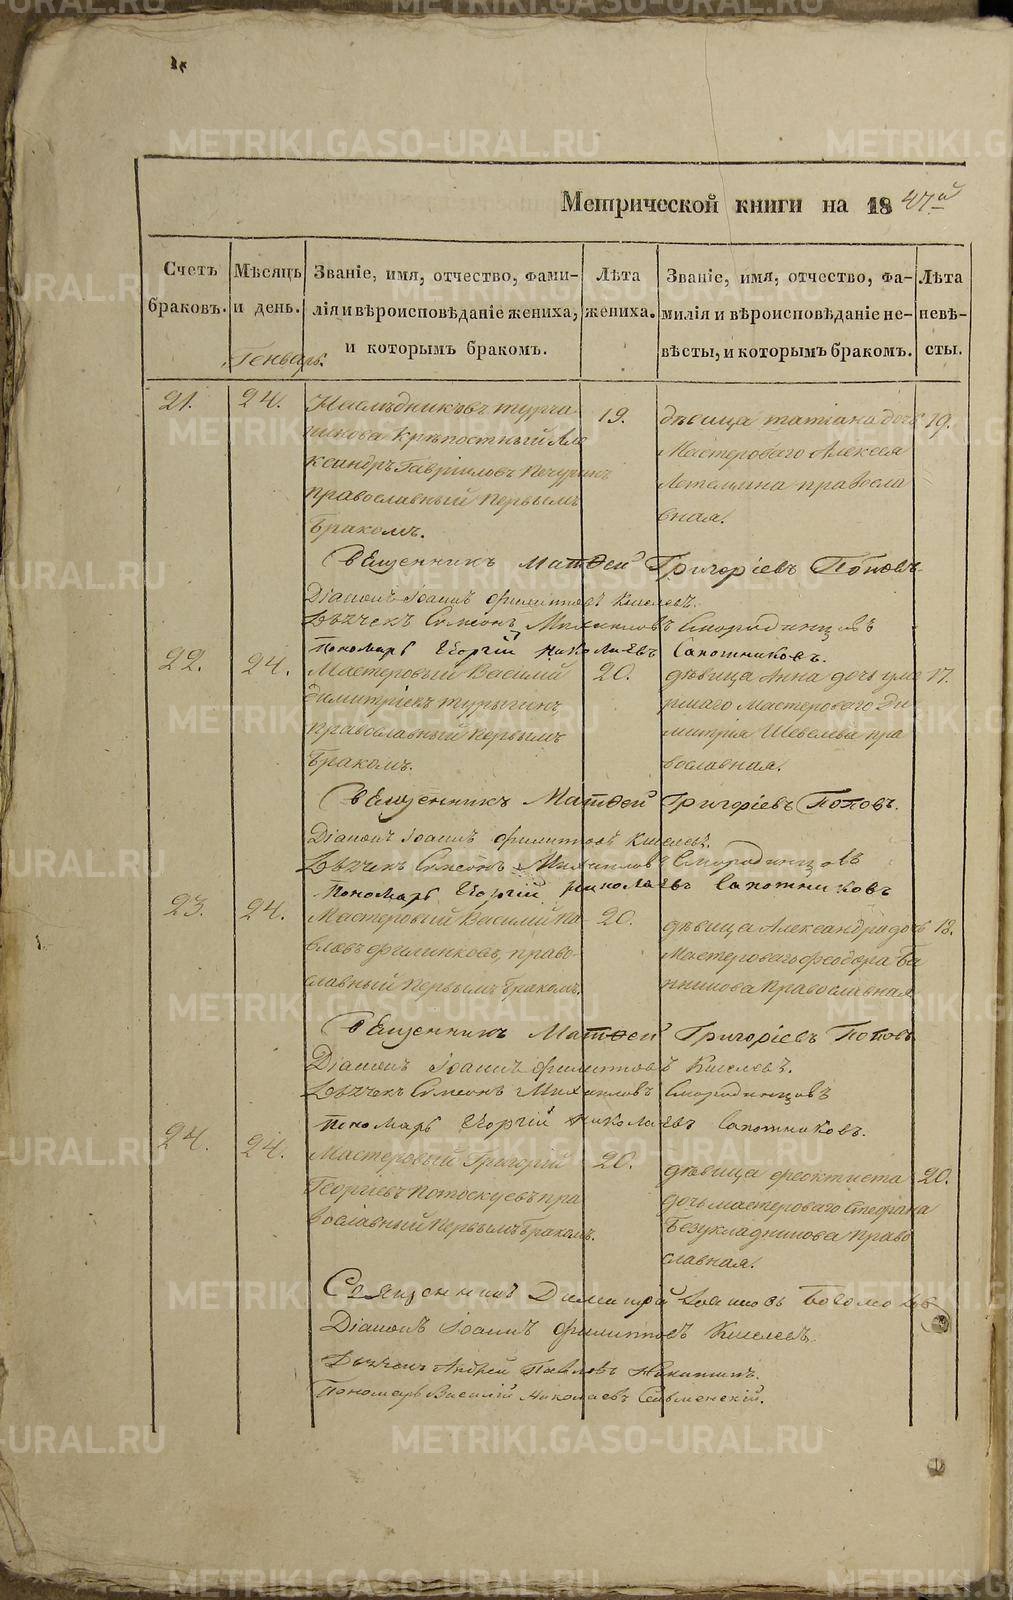 Метрической книги на 1847й
Счетъ браковъ.
Мѣсяцъ и день.
Званіе, имя, отчество, фами-
лія и вѣроисповѣданіе жениха,
и которымъ бракомъ.
Лѣта жениха.
Званіе, имя, отчество, фа-
милія и вѣроисповѣданіе не-
вѣсты, и которымъ бракомъ.
Лѣта невѣ-
сты.
Генварь.
21.
24.
Наслѣдниковъ турча
нинова крѣпостный Але
ксандръ Гавріиловъ Печуринъ
православный первымъ
бракомъ.
19.
дѣвица татіана дочь
Мастероваго Алексея
правосла
вная.
19.
Священникъ Матѳей Григоріевъ Поповъ
Діаконъ Іоаннъ Филипповъ Киселевъ.
Дьячекъ Симеонъ Михаиловъ Смородинцовъ
Пономарь Георгій Николаевъ Сапожниковъ.
22.
24.
Мастеровый Василій
димитріевъ турыгинъ,
православный первымъ
бракомъ.
20.
дѣвица Анна дочь уме
ршаго Мастероваго Ди
митрія Шевелева пра
вославная.
17.
Священникъ Матѳей Григоріевъ Поповъ.
Діаконъ Іоаннъ Филипповъ Киселевъ.
Дьячекъ Симеонъ Михаиловъ Смородинцовъ
Пономарь Георгій Николаевъ Сапожниковъ
23.
24.
Мастеровый Василій Па
вловъ филинковъ, право-
славный первымъ бракомъ.
20.
дѣвица Александра дочь
Мастероваго феодора Ба
нникова православная
18.
Священникъ Матѳей Григоріевъ Поповъ
Діаконъ Іоаннъ Филипповъ Киселевъ.
Дьячекъ Симеонъ Михаиловъ Смородинцовъ
Пономарь Георгій Николаевъ Сапожниковъ.
24.
24.
Мастеровый Григорій
Георгіевъ Потоскуевъ пра
вославный первымъ бракомъ.
20.
дѣвица феоктиста
дочь мастероваго Стефана
Безукладникова право
славная.
20.
Священникъ Димитрій Іоанновъ Богомоловъ
Діаконъ Іоаннъ Филипповъ Киселевъ.
Дьячекъ Андрей Павловъ Никитинъ.
Пономарь Василій Николаевъ Сельменскій.
METRIKI.GASO-URAL.RU